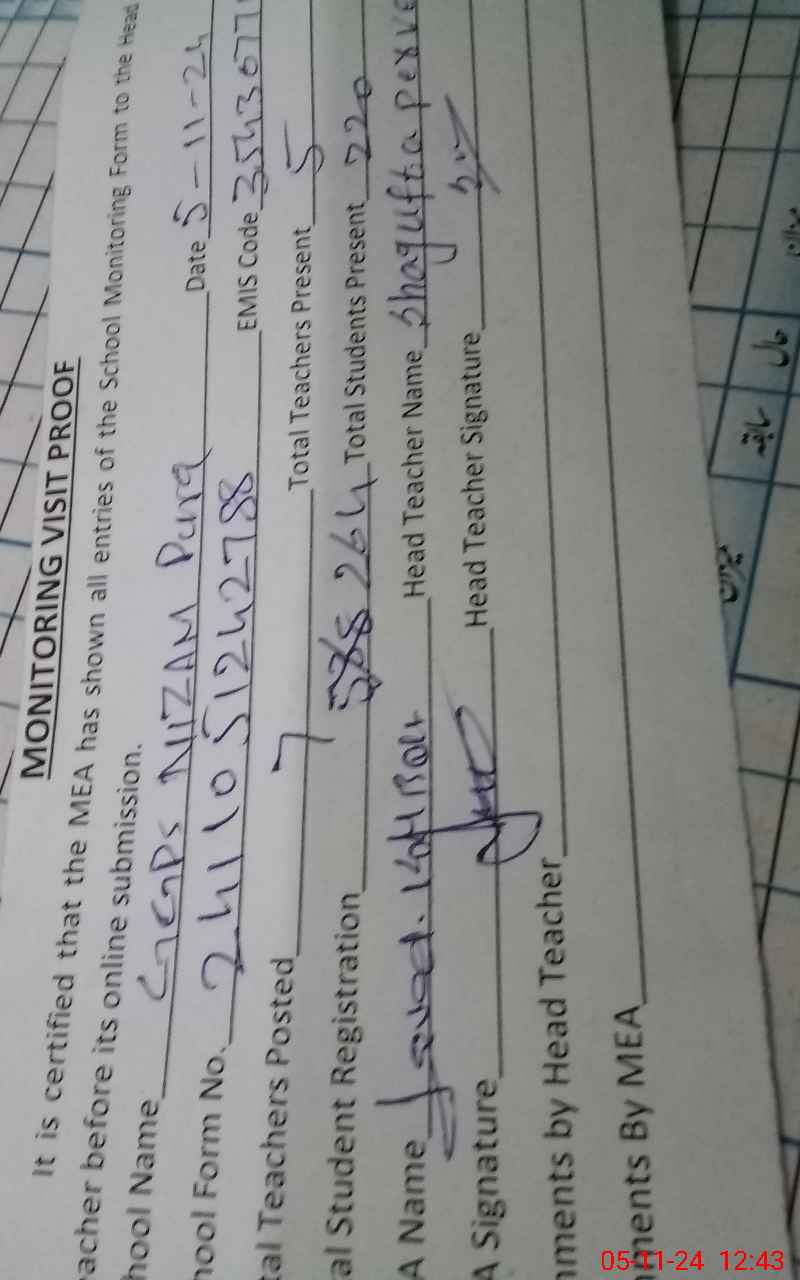 MONITORING VISIT PROOF
It is certified that the MEA has shown all entries of the School Monitoring Form to the Head
acher before its online submission.
hool Name GGPS NIZAM Pura Date 5-11-24
hool Form No. 2411051242788 EMIS Code 3543077
tal Teachers Posted 7 Total Teachers Present 5
al Student Registration 264 Total Students Present 220
A Name Javed. Head Teacher Name Shagufta perve
A Signature Head Teacher Signature
mments by Head Teacher
ments By MEA
میزان
سابقہ
حال
میزان
05-11-24 12:43